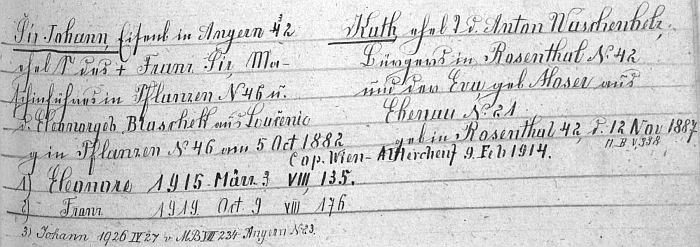 Sir Johann, Eisenb in Angern 42
ehel S des + Franz Sir, Ma-
schinführers in Pflanzen N 46 u.
d. Eleonora geb. Blaschek aus Loučenic
g in Pflanzen N 46 am 5 Oct 1882
Kath ehel T d. Anton Waschenholz,
Bürgers in Rosenthal N. 42
und der Eva geb. Moser aus
Ebenau N. 21
geb in Rosenthal 42, d. 12 Nov 1887
M. B V. 338
Cop. Wien-Altlerchenf 9. Feb 1914.
1) Eleonore 1915 März 3 VIII 135.
2) Franz 1919 Oct 9 VIII 176
3) Johann 1926 IV 27 v MB VIII 234 Angern N 23.